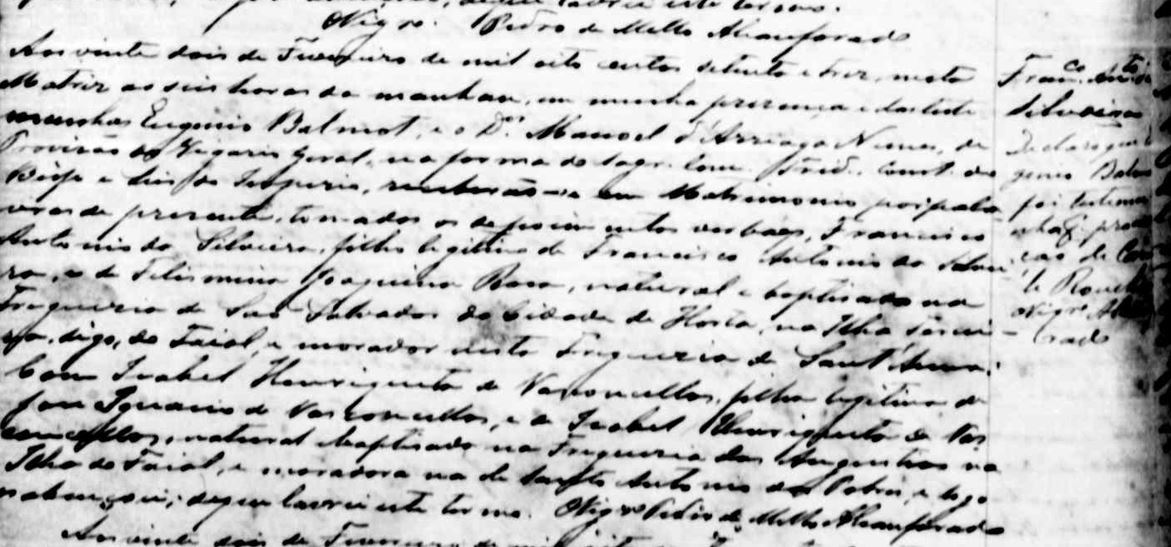 este termo.
Vigrº. Pedro de Mello Alcanforado
Aos vinte dois de Fevereiro de mil oito centos setenta e trez, nesta
Matriz as seis horas da manhan, em minha prezença e das teste
munhas Eugenio Balmot, e o Dor. Manoel d'Arriaga Nunes, de
Provizão do Vigario Geral, na forma do Sagr. Conc. Trid., Const. do
Bispº e Leis do Imperio, receberão-se em Matrimonio por pala
vras de prezente, tomados os depoimentos verbaes, Francisco
Antonio da Silveira, filho legitimo de Francisco Antonio da Silvei
ra, e de Felismina Joaquina Rosa, natural e baptisado na
Freguezia de Sao Salvador da Cidade de Horta, na Ilha Tercei-
ra, digo, do Faial, e morador nesta Freguezia de Sant'Anna;
Com Izabel Henriqueta de Vasconcellos, filha legitima de
José Ignacio de Vasconcellos, e de Izabel Henriqueta de Vas
concellos, natural baptisada na Freguezia das Angustias na
Ilha do Faial, e moradora na de Santo Antonio dos Pobres, e logo
os abençoei; de que lavrei este termo. Vigrº Pedro de Mello Alcanforado
Aos vinte dois de Fevereiro de mil oito
Franco. Antº da
Silveira
Declaro que
genio Balm
foi testemu
por procu
ração de
Vigrº. Alcan
forado